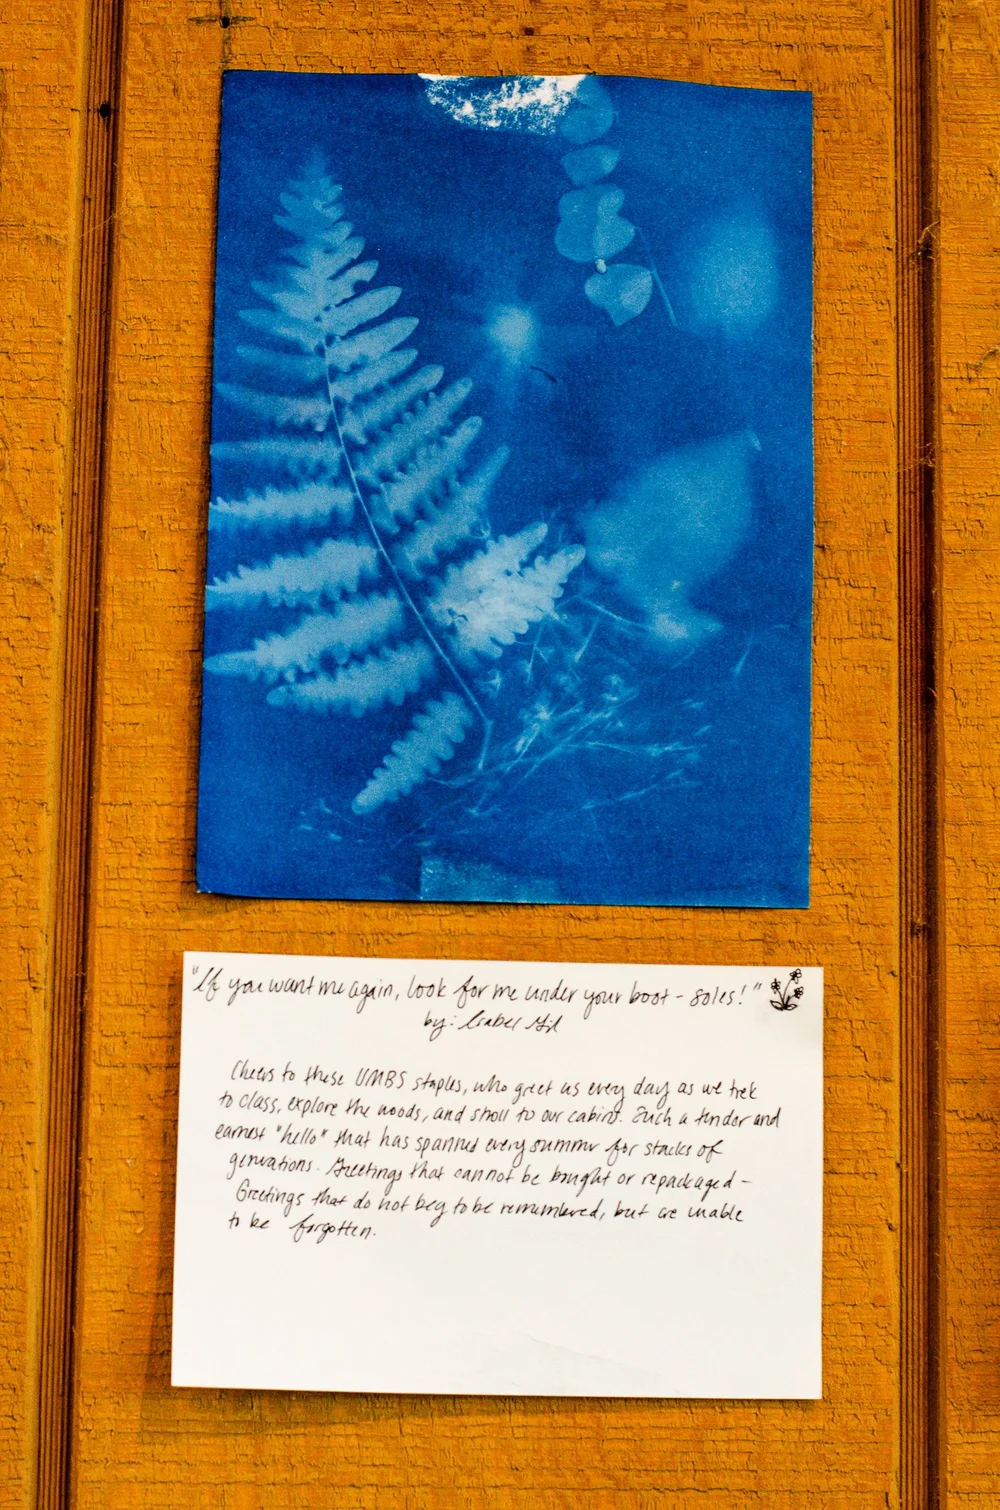 "If you want me again, look for me under your boot-soles!"
by: Isabel Gil
Cheers to these UMBS staples, who greet us every day as we trek
to class, explore the woods, and stroll to our cabins. Such a tender and
earnest "hello" that has spanned every summer for stacks of
generations. Greetings that cannot be bought or repackaged -
Greetings that do not beg to be remembered, but are unable
to be forgotten.